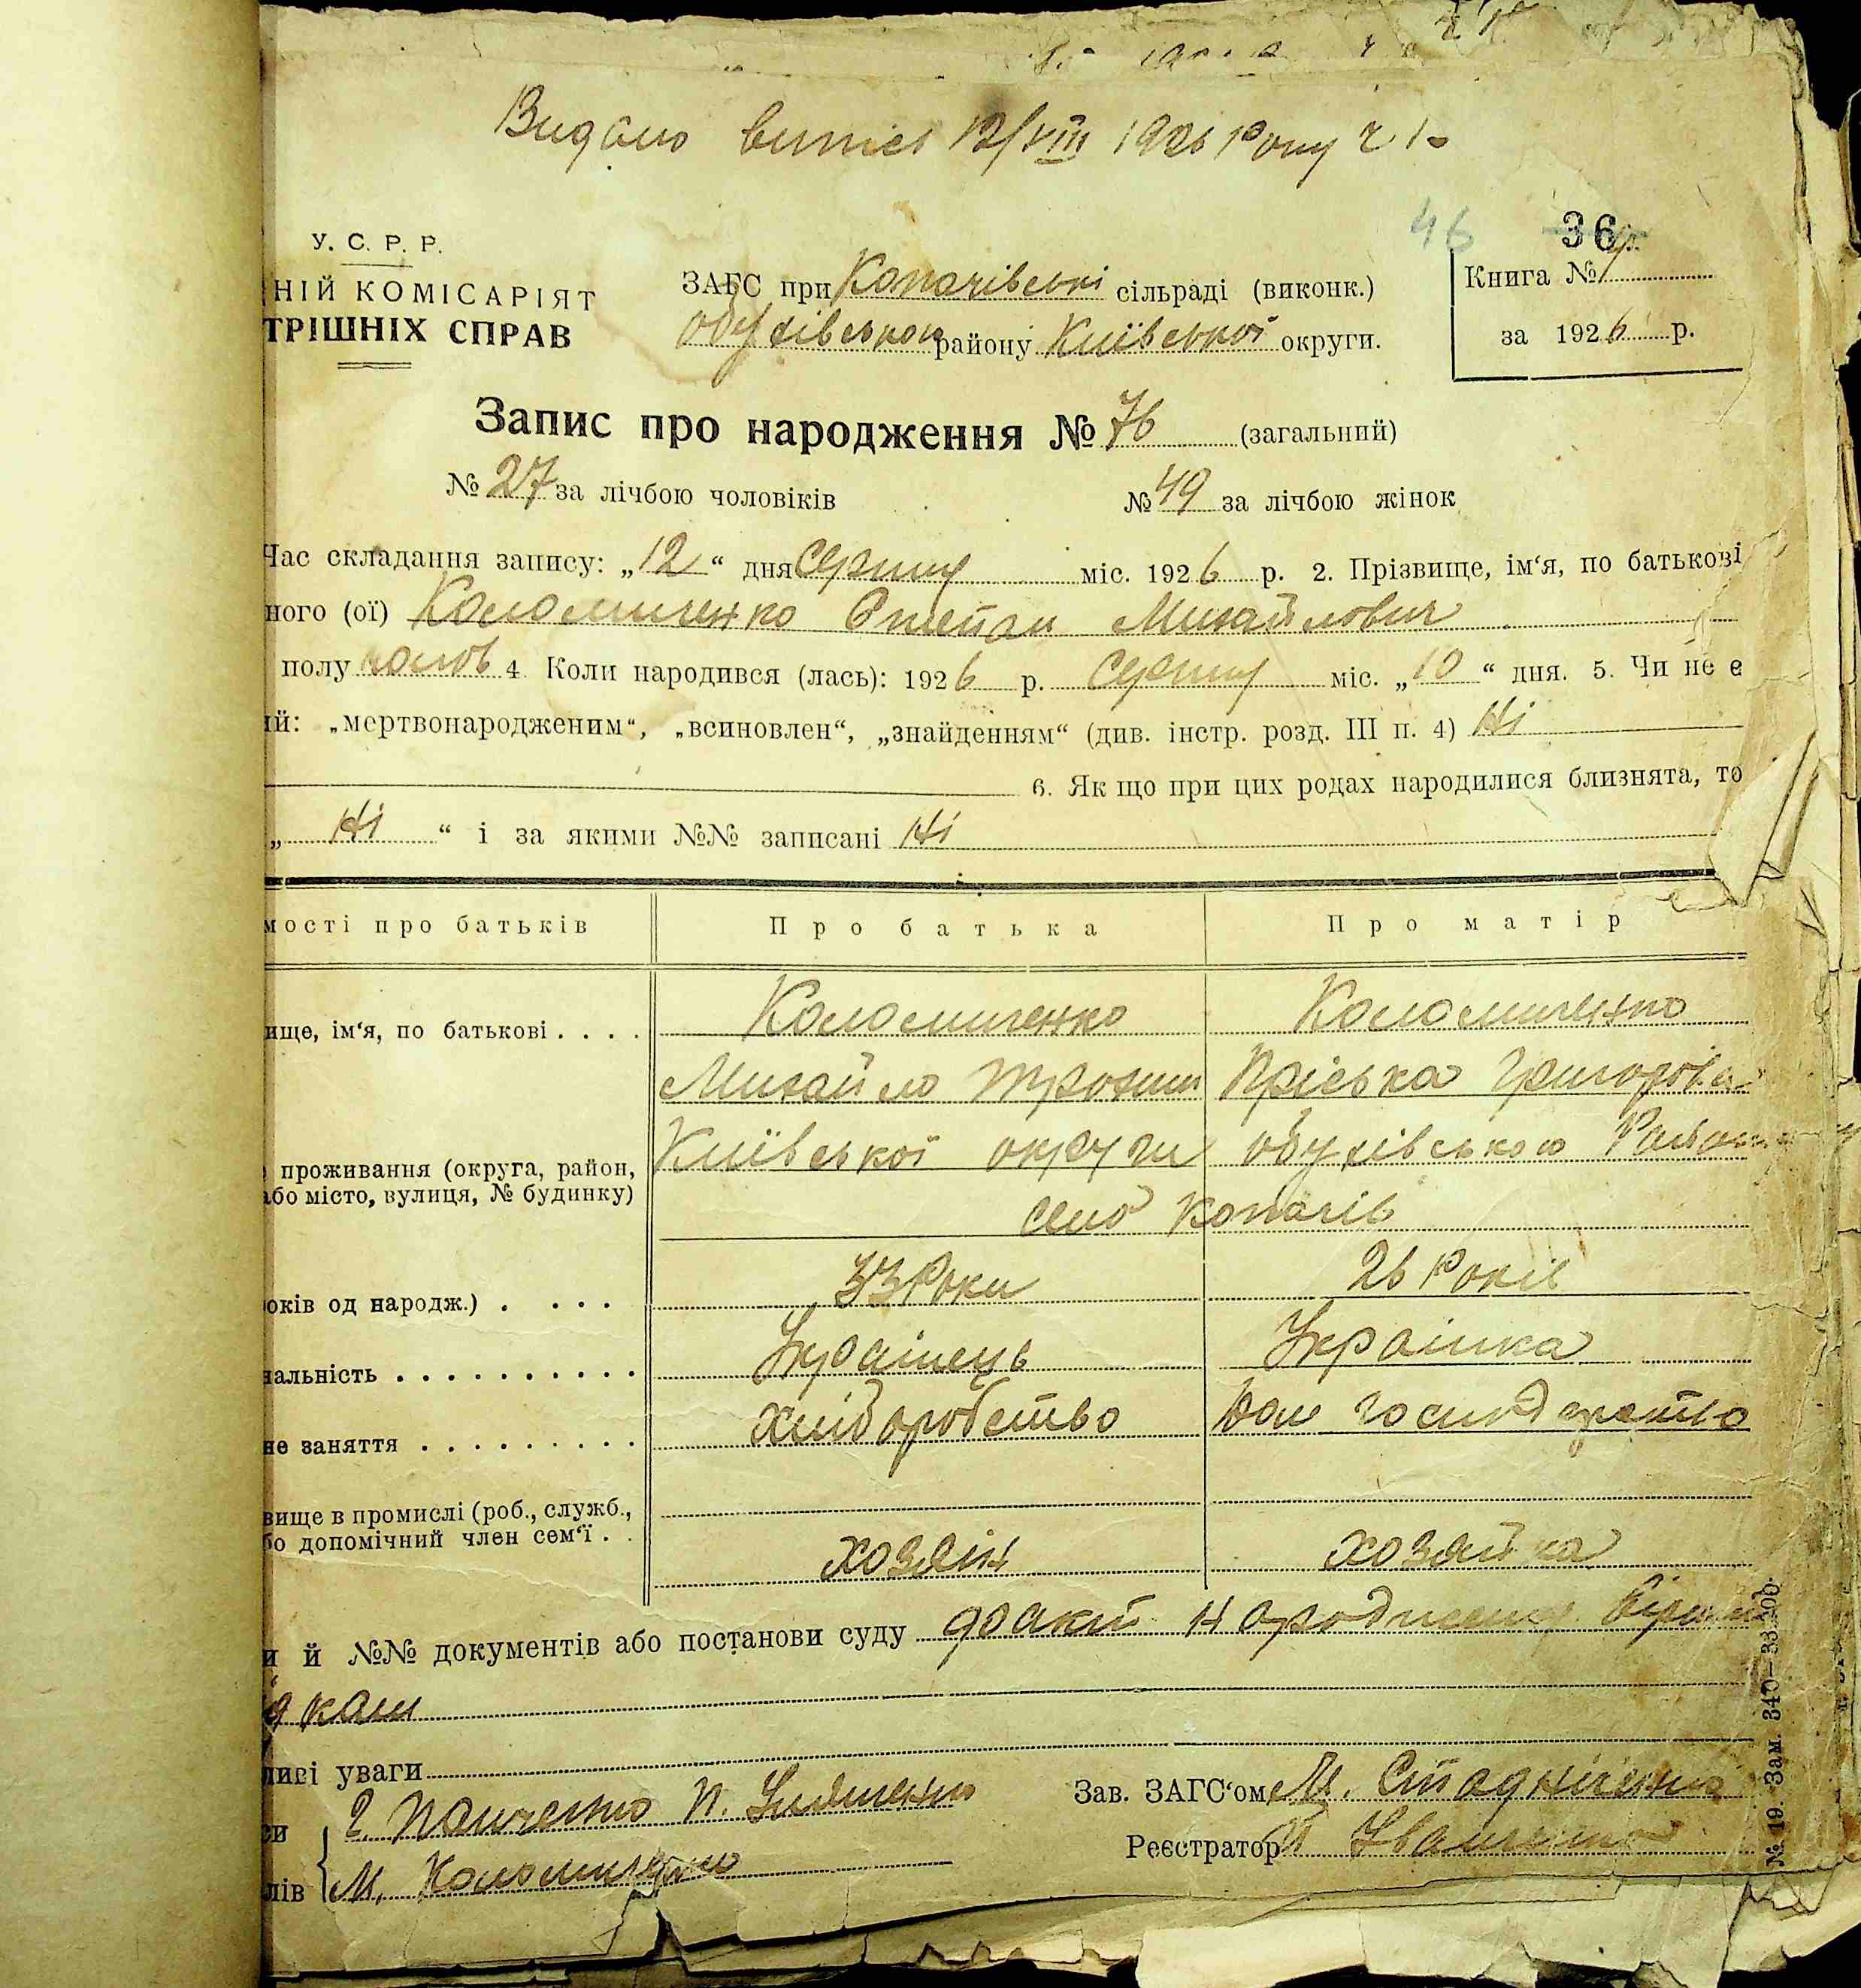 Видано витяг 12/VIII 1926 року
46 36
У. С. Р. Р.
НІЙ КОМІСАРІЯТ
ТРІШНІХ СПРАВ
ЗАГС при Копачівські сільраді (виконк.)
Обухівського району Київської округи.
Книга №
за 1926 р.
Запис про народження № 76 (загальний)
№ 27 за лічбою чоловіків № 49 за лічбою жінок
Час складання запису: „12“ дня Серпня міс. 1926 р. 2. Прізвище, ім‘я, по батькові
ного (ої) Коломиченко Степан Михайлович
полу чолов 4. Коли народився (лась): 1926 р. Серпня міс. „10“ дня. 5. Чи не є
ий: „мертвонародженим“, „всиновлен“, „знайденням“ (див. інстр. розд. III п. 4) Ні
6. Як що при цих родах народилися близнята, то
„Ні“ і за якими №№ записані Ні
мості про батьків Про батька Про матір
ище, ім‘я, по батькові . . . . Коломиченко Коломиченко
Михайло Пріська Григорівна
проживання (округа, район, Київської округи Обухівського Району
або місто, вулиця, № будинку)
село Копачів
оків од народж.) . . . . 33 Роки 26 Років
нальність . . . . . . . . . . Українець Українка
не заняття . . . . . . . . . Хліборобство Дом господарство
вище в промислі (роб., служб.,
бо допомічний член сем‘ї . . хозяін хозяйка
и й №№ документів або постанови суду
ливі уваги
си Г. Панченко П.
Зав. ЗАГС‘ом М. Стадніченко
Реєстратор Іващенко
лів М. Коломиченко
№ 19. Зам. 340—33.000.